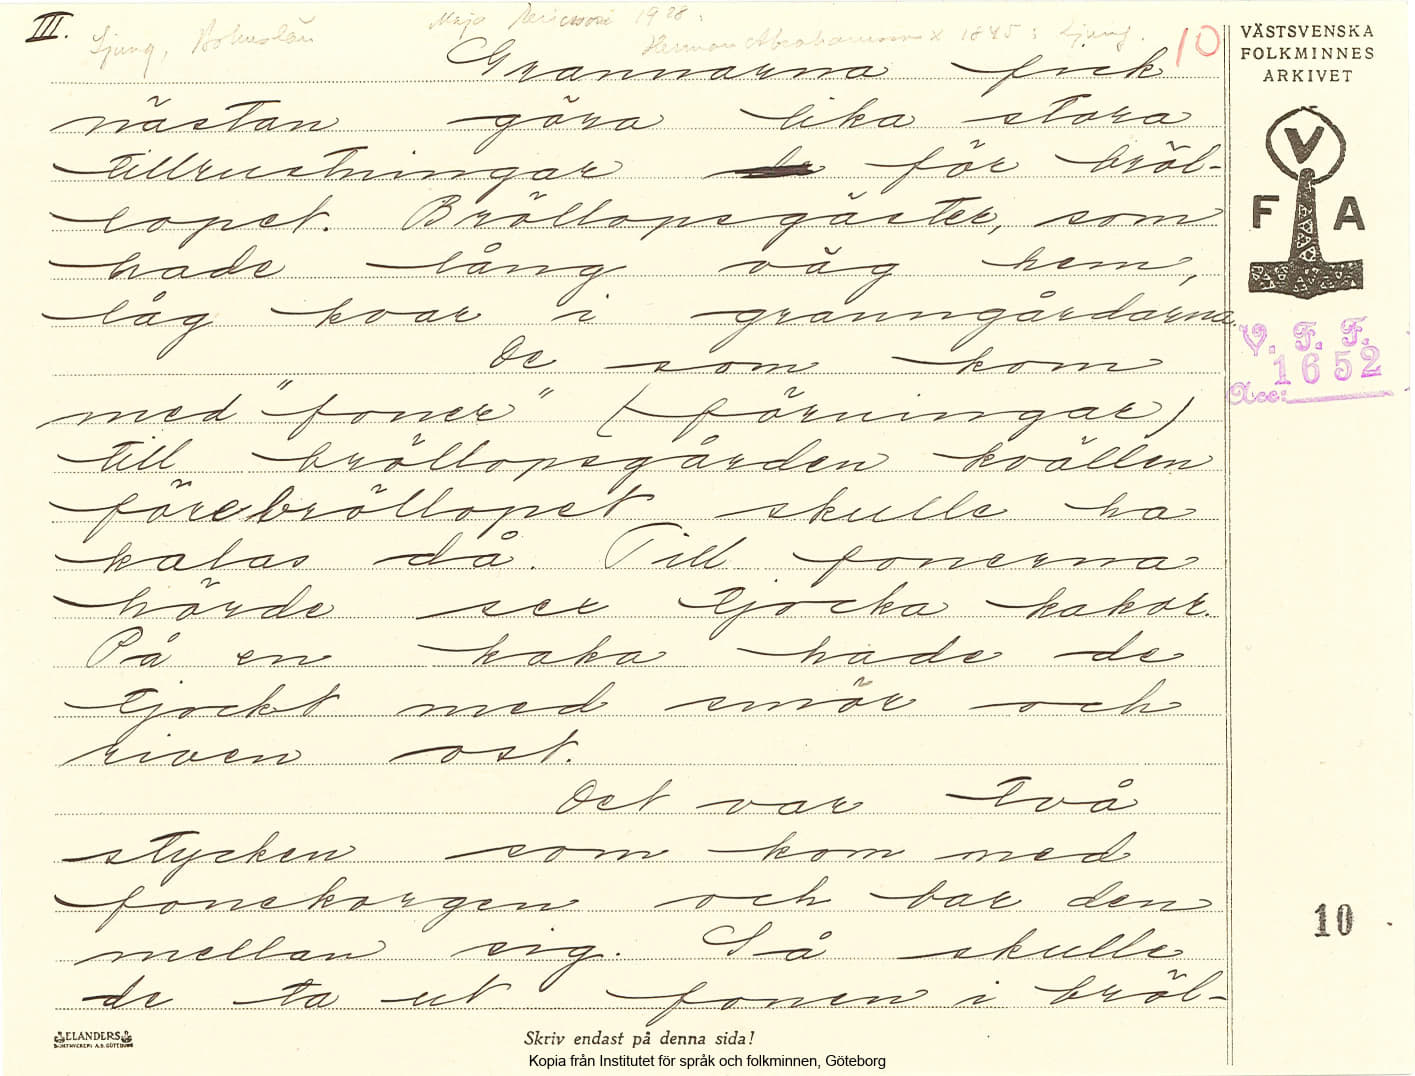 III.
Ljung, Bohuslän
Maja Ericsson 1928.
Herman Abrahamsson x 1845 i Ljung.
10
VÄSTSVENSKA
FOLKMINNES
ARKIVET
V
F A
V. F. F.
1652
Acc:
Grannarna fick
nästan göra lika stora
tillrustningar för bröl-
lopet. Bröllopsgäster, som
hade lång väg hem,
låg kvar i granngårdarna.
De som kom
med "foner" (förningar)
till bröllopsgården kvällen
före bröllopet skulle ha
kalas då. Till fonerna
hörde ser tjocka kakor.
På en kaka hade de
tjockt med smör och
riven ost.
Det var två
stycken som kom med
fonekorgen och bar den
mellan sig. Så skulle
de ta ut fonen i bröl-
10
ELANDERS
BOKTRYCKERI A.B. GÖTEBORG
Skriv endast på denna sida!
Kopia från Institutet för språk och folkminnen, Göteborg